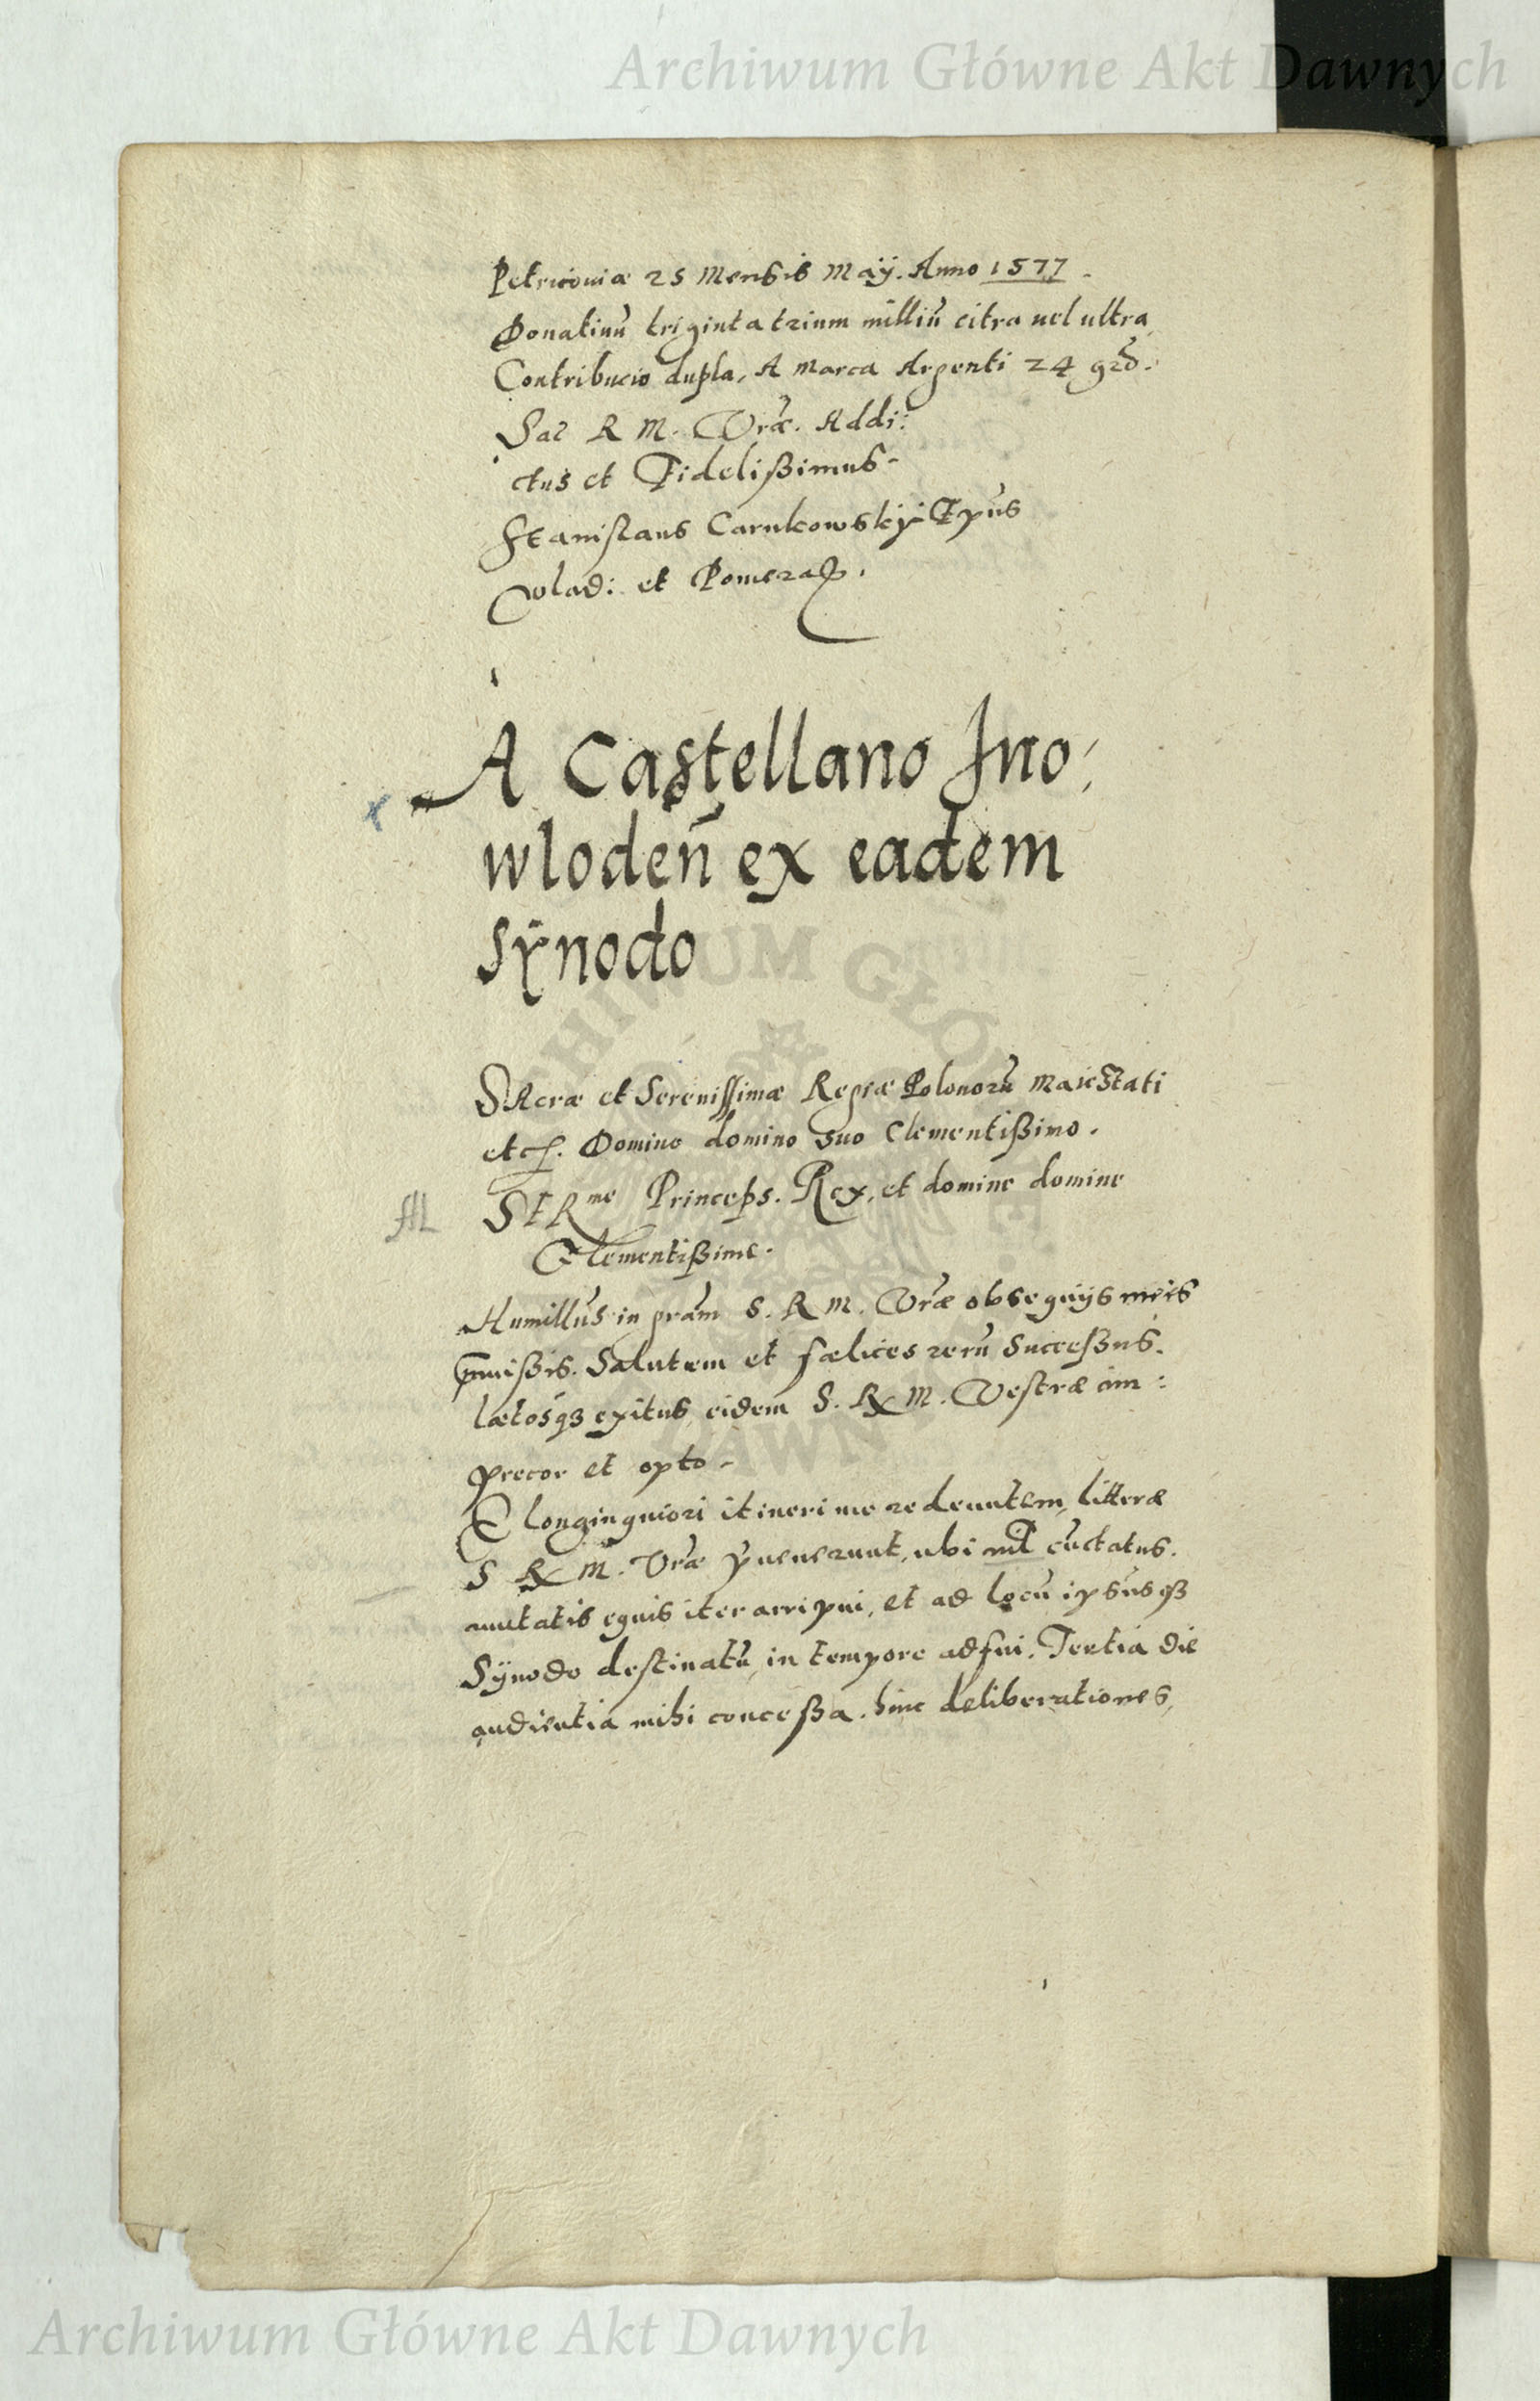 Archiwum Główne Akt Dawnych
Petricoviæ 25 Mensis Maÿ. Anno 1577.
Donatiuũ triginta trium milliũ citra uel ultra
Contribucio dupla, A marca Argenti 24 gro.
Sac R M. Vræ. Addi:
ctus et Fidelißimus.
Stanislaus Carnkowskÿ Epus
Wlad: et Pomera.
A Castellano Ino:
wlodeñ ex eadem
sÿnodo
SAcræ et Serenissimæ Regiæ Polonorũ Maiestati
etc. Domino domino suo Clementißimo.
SER me Princeps. Rex, et domine domine
Clementißime.
Humillus in gram S. R M. Vræ obsequijs meis
pmißis. Salutem et fælices rerũ Succeßus.
lætosqз exitus, eidem S. R M. Vestræ im:
precor et opto.
E longinquiori itineri me redeuntem, litteræ
S R M. Vræ puenerunt, ubi nil cũctatus.
mutatis equis iter arripui, et ad locũ ipsusqз
Sÿnodo destinatũ, in tempore adfui. Tertia die
audientia mihi conceßa. hinc deliberationes,
Archiwum Główne Akt Dawnych